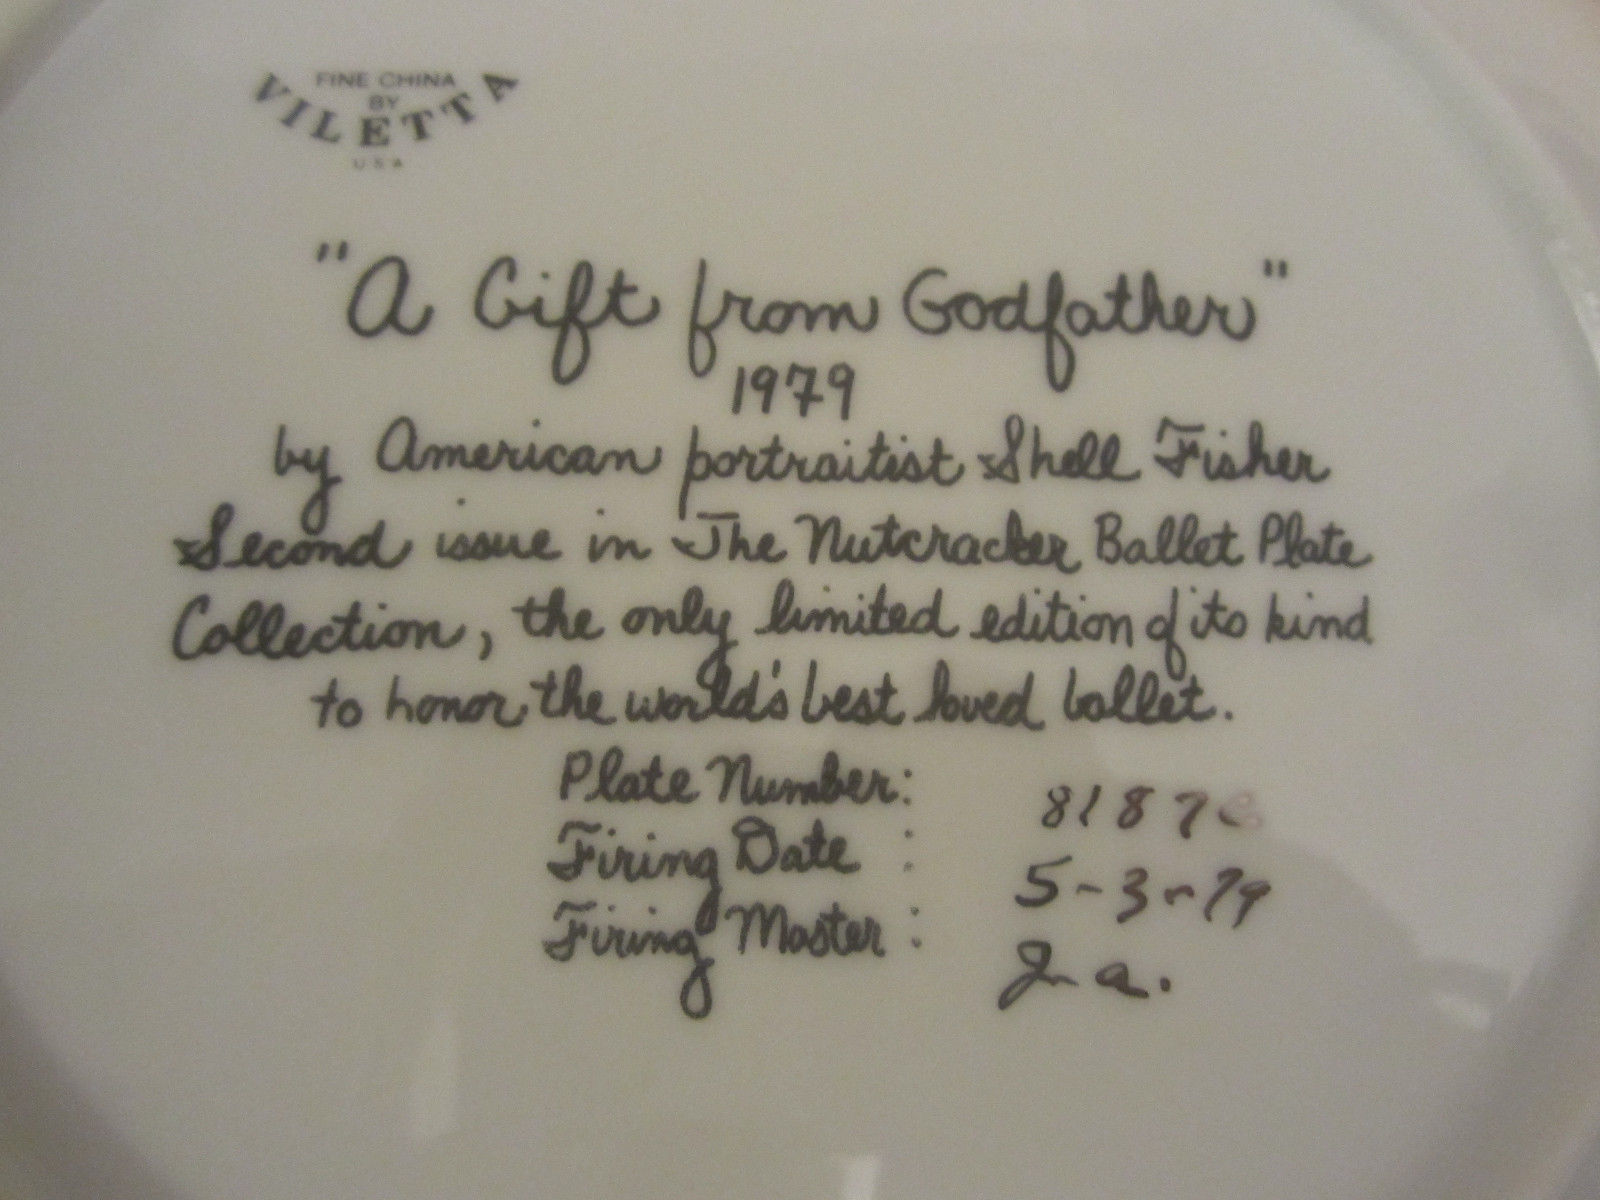 FINE CHINA
BY
VILETTA
USA
"A Gift from Godfather"
1979
by American portraitist Shell Fisher
Second issue in The Nutcracker Ballet Plate
Collection, the only limited edition of its kind
to honor the world's best loved ballet.
Plate Number:
Firing Date : 5-3-79
Firing Master : J a.